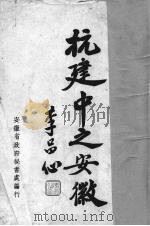 抗建中之安徽
李品仙
安徽省政府秘書處編行